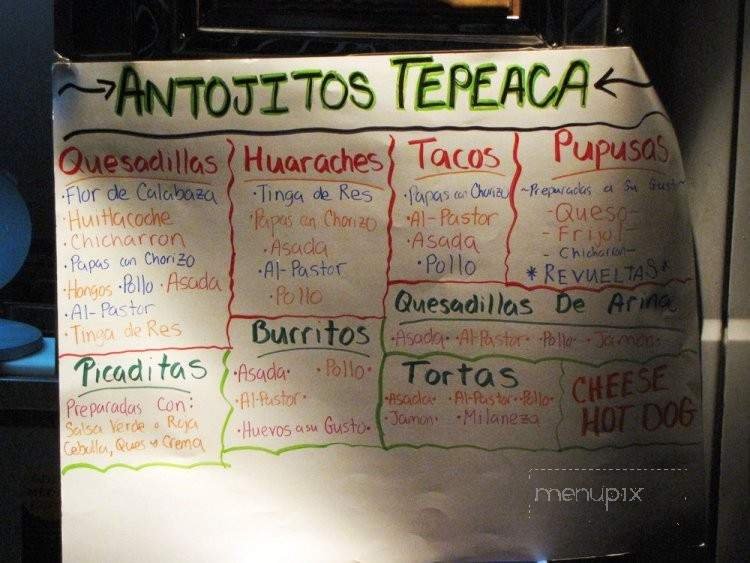 ANTOJITOS TEPEACA
Quesadillas
·Flor de Calabaza
·Huitlacoche
·Chicharron
·Papas con Chorizo
·Hongos ·Pollo ·Asada
·Al-Pastor
·Tinga de Res
Huaraches
·Tinga de Res
·Papas con Chorizo
·Asada
·Al-Pastor
·Pollo
Tacos
·Papas con Chorizo
·Al-Pastor
·Asada
·Pollo
Pupusas
~Preparadas a Su Gusto~
-Queso-
-Frijol-
-Chicharron-
*REVUELTAS*
Quesadillas De Arina
·Asada· Al-Pastor· ·Pollo· ·Jamon·
Picaditas
Preparadas Con:
Salsa Verde o Roja
Cebolla, Ques y Crema
Burritos
·Asada· ·Pollo·
·Al-Pastor·
·Huevos a su Gusto·
Tortas
·Asada· ·Al-Pastor· ·Pollo·
·Jamon· ·Milaneza
CHEESE
HOT DOG
menupix